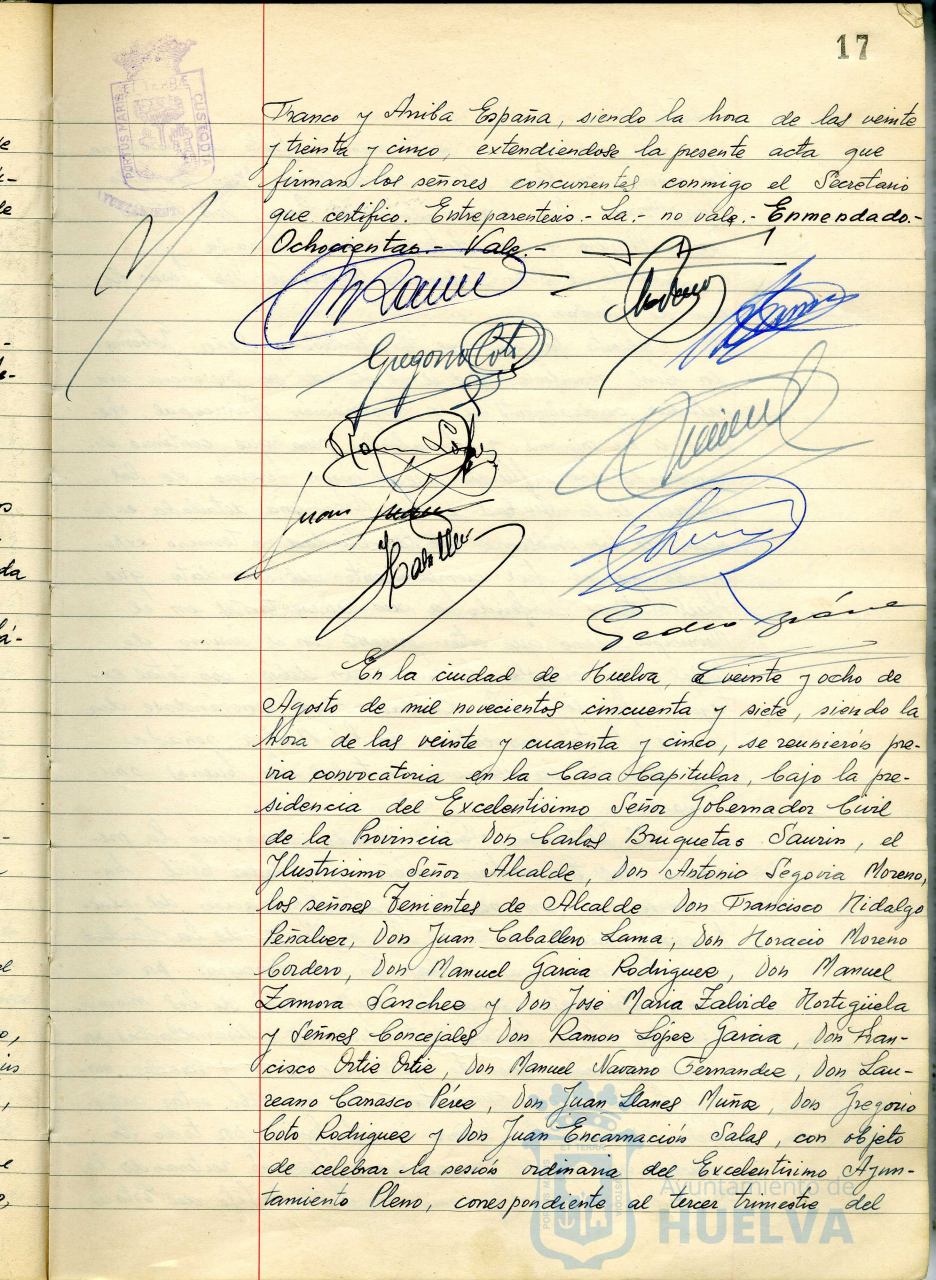 17
PORTUS MARIS
CUSTODIA
Franco y Arriba España, siendo la hora de las veinte
y treinta y cinco, extendiendose la presente acta que
firman los señores concurrentes conmigo el Secretario
que certifico. Entreparentesis.- La.- no vale.- Enmendado.-
Ochocientas.- Vale.-
Gregorio Coto
Ramon López
Juan
En la ciudad de Huelva, a veinte y ocho de
Agosto de mil novecientos cincuenta y siete, siendo la
hora de las veinte y cuarenta y cinco, se reunierón pre-
via convocatoria en la Casa Capitular, bajo la pre-
sidencia del Excelentisimo Señor Gobernador Civil
de la Provincia Don Carlos Bruquetas Saurin, el
Ilustrisimo Señor Alcalde, Don Antonio Segovia Moreno,
los señores Tenientes de Alcalde Don Francisco Hidalgo
Peñalver, Don Juan Caballero Lama, Don Horacio Moreno
Cordero, Don Manuel Garcia Rodriguez, Don Manuel
Zamora Sanchez y Don José Maria Zalvide Hortigüela
y Señores Concejales Don Ramon López Garcia, Don Fran-
cisco Ortiz Ortiz, Don Manuel Navarro Fernandez, Don Lau-
reano Carrasco Pérez, Don Juan Llanes Muñoz, Don Gregorio
Coto Rodriguez y Don Juan Encarnación Salas, con objeto
de celebrar la sesión ordinaria del Excelentisimo Ayun-
tamiento Pleno, correspondiente al tercer trimestre del
Ayuntamiento de
HUELVA